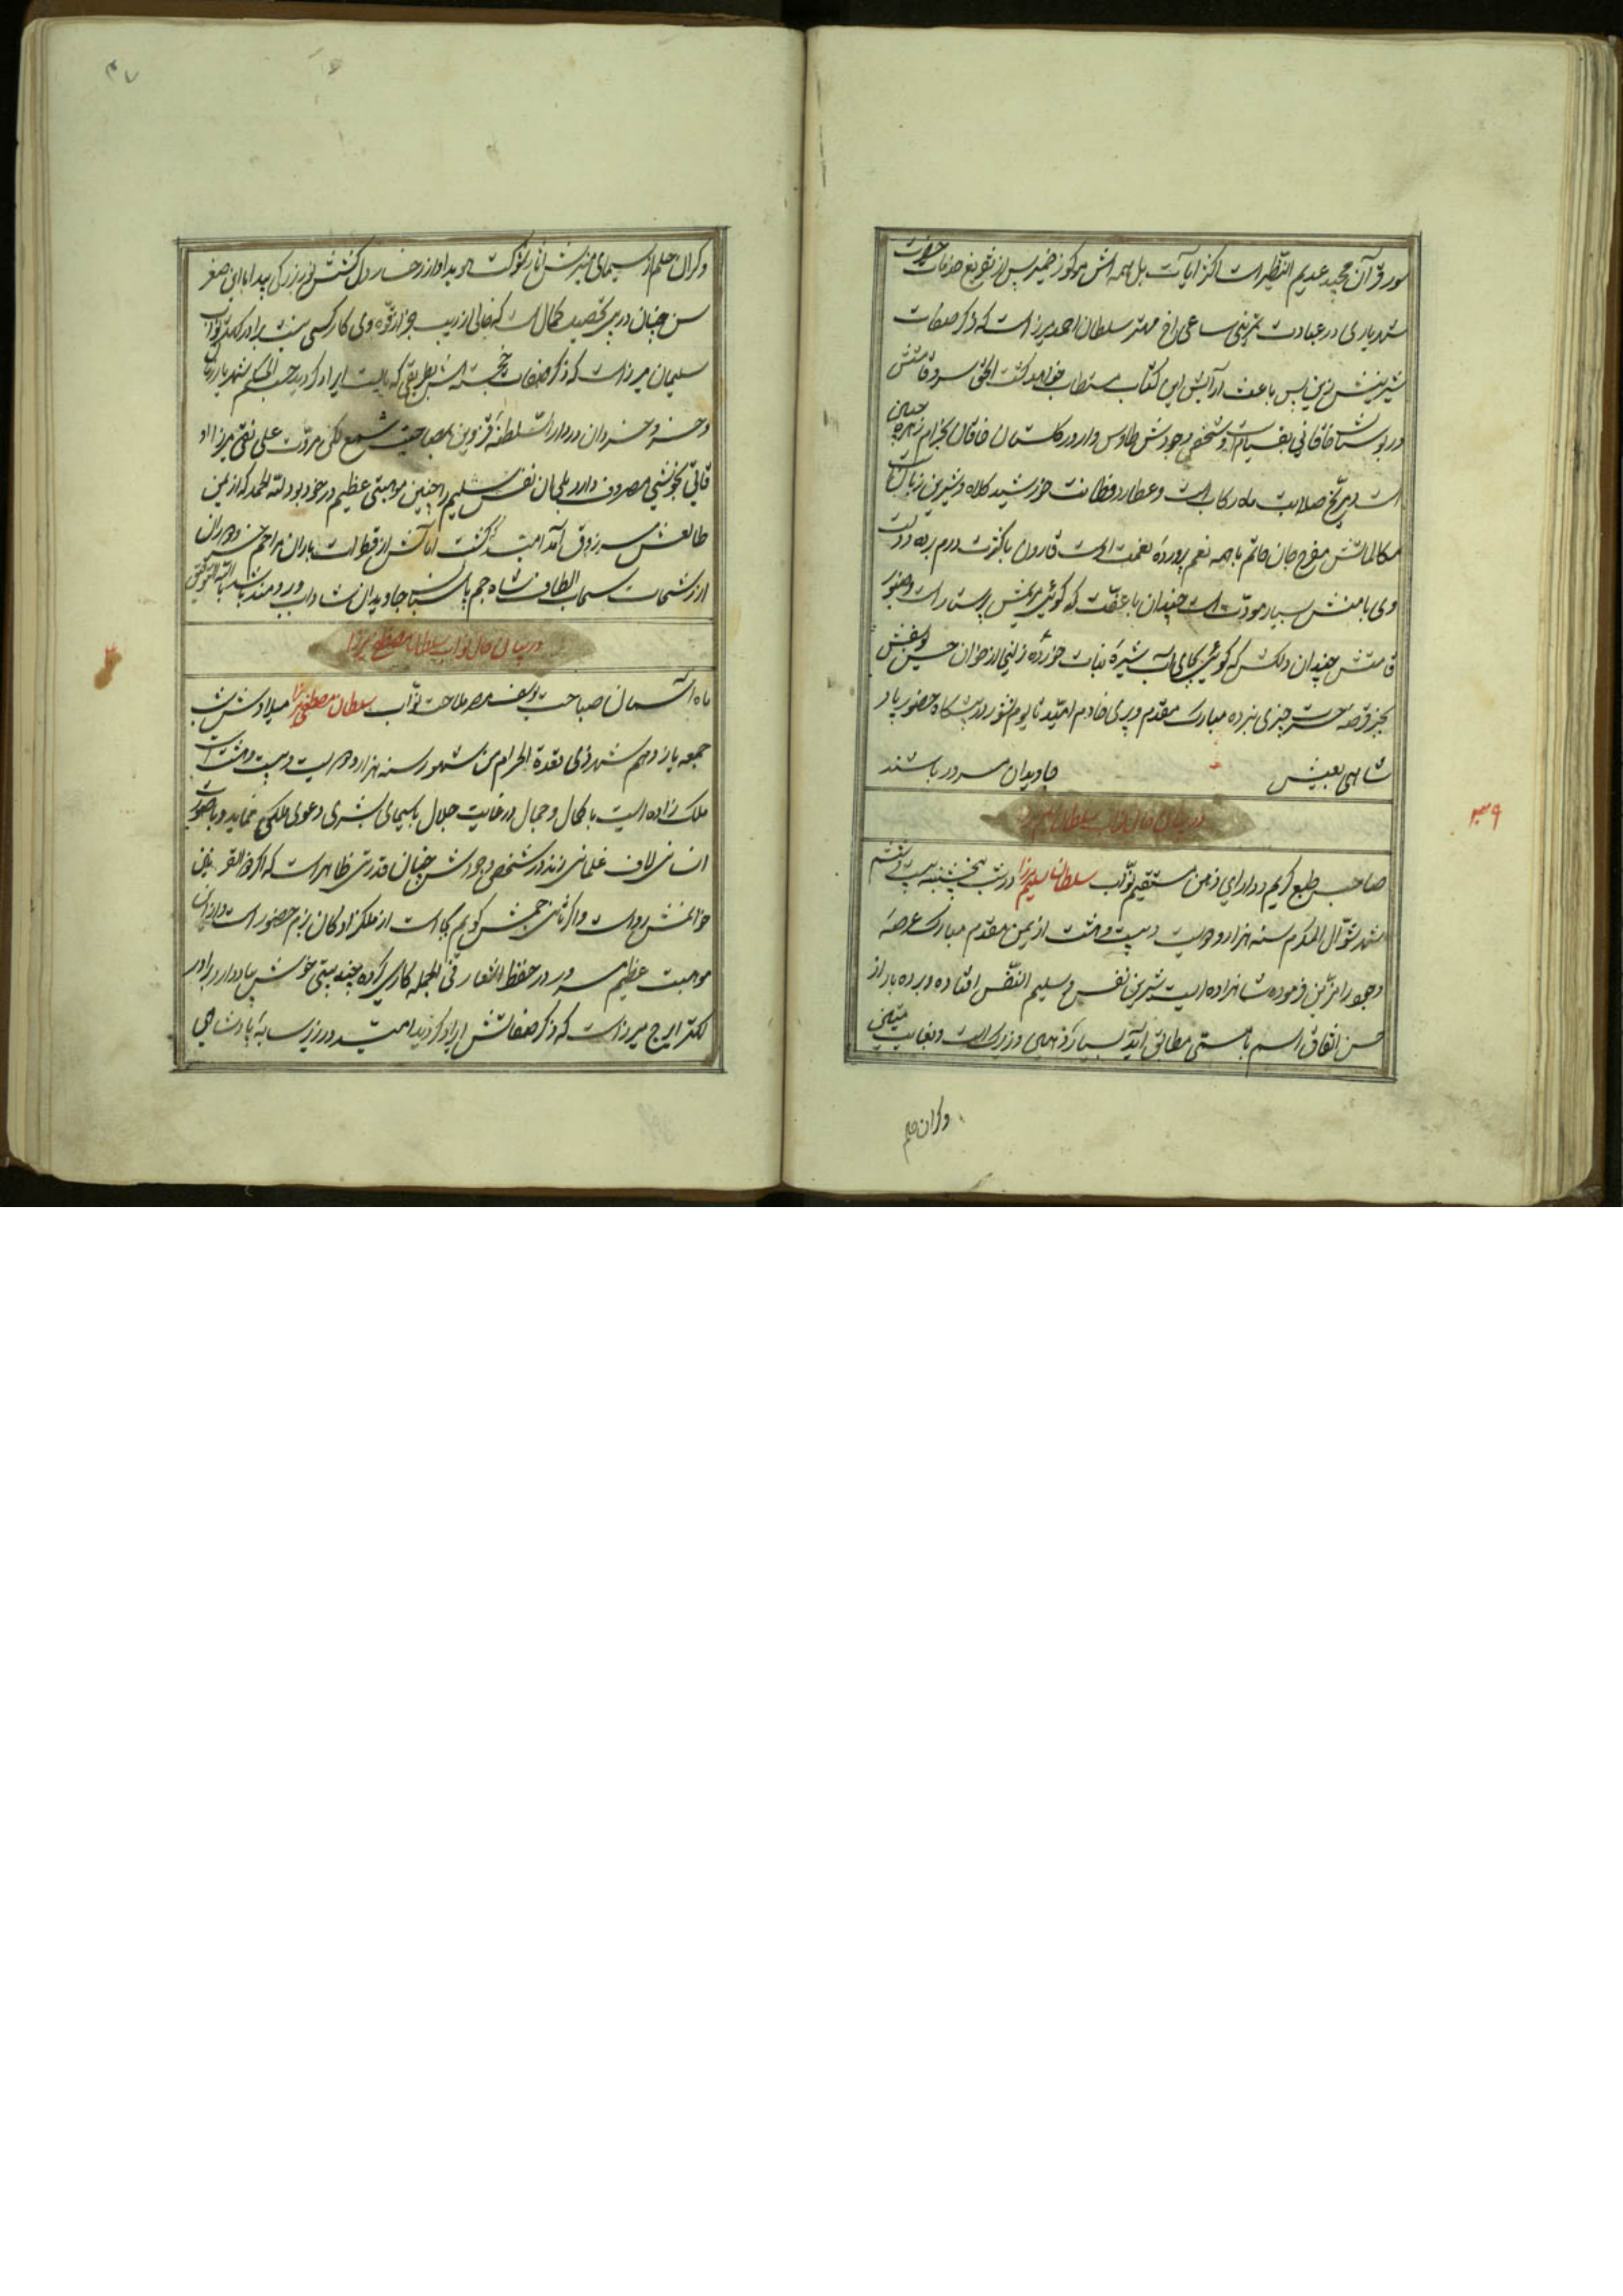 سور قرآن مجید عدیم النظیر است اکثر آیات بل همه اش مرکوز ضمیر پس از تفریغ خدمات حضرت
شهریاری در عبادت قرینی ساعی اخ مهتر سلطان احمد میرزا است که ذکر صفات
شیرینش زین پس باعث آرایش این کتاب مستطاب خواهد گشت الحق سرو قامتش
در بوستان خاقانی بقیام است و شخص وجودش طاوس وار در گلستان خاقان بخرام زهره جبین
است مریخ صلابت ماه رکاب است و عطارد فطانت خورشید کلاه و شیرین زبان است
مکالماتش مفرح جان حاتم با همه نعم پرورده نعمت اوست قارون با کثرت درم برده دولت
وی با منش بسیار مودت است چندان با عفت که گوئی مریمش پرستار است و صنوبر
قامتش چندان دلکش که گوئی بجای آب شیره نبات خورده زلیخا از خوان حسن یوسفش
بجز قرصه حسرت چیزی نبرده مبارک مقدم و پری خادم امید تا یوم نشور در پیشگاه حضور پادشاهی بعیش جاویدان مسرور باشند
در بیان حال نواب سلطان سلیم میرزا
صاحب طبع کریم و دارای ذهن مستقیم نواب سلطان سلیم میرزا در شب پنجشنبه بیست و هشتم
شهر شوال المکرم سنه هزار و دویست و بیست و هشت از یمن مقدم مبارک عرصه
وجود را مزین فرموده شاهزاده ایست شیرین نفس و سلیم النفس افتاده و برده بار از
حسن اتفاق اسم با مسمی مطابق آمد بسیار ذهین و زیرک است و بغایت متین
وگران حلم
۳۹
وگران حلم از سیمای منیرش آثار شوکت هویدا و از رخسار دل کشش نور بزرگی پیدا با این صغر
سن چنان در پی تحصیل کمال است که خالی از ریب جز از قوه وی کار کسی نیست برادر کهتر نواب
سلیمان میرزا است که ذکر صفات خجسته اش بطریقی که بایست ایراد گردید حسب الحکم شهریار زمان
و خسرو خسروان در دار السلطنه قزوین بمصاحبت شمع فلک مروت علی نقی میرزا او
قاتی بخوشی مصروف دارد بلی آن نفس سلیم را چنین موهبتی عظیم در خور بود لله الحمد که از یمن
طالعش سبز و ق آمد امید کشت آمالش از قطرات باران مراحم خسرو دوران
از رشحات سحاب الطاف شاه جم پاسبان جاویدان شاداب و برومند باشد بالله التوفیق
در بیان حال نواب سلطان مصطفی میرزا
ماه آسمان صباحت یوسف مصر ملاحت نواب سلطان مصطفی میرزا میلادش شب
جمعه یازدهم شهر ذی قعدة الحرام من شهور سنه هزار و دویست و بیست و هشت است
ملک زاده ایست با کمال و جمال در غایت جلال با سیمای بشری دعوی ملکی نماید و با صورت
انسانی لاف غلمانی زند در شخص وجودش چنان قدرتی ظاهر است که اگر ذو القرنین
خوانمش رواست و اگر ثانی جمش گویم بجا است از ملکزادگان بزم حضور است و از این
موهبت عظیم مسرور در حفظ اشعار فی الجمله کاری کرده چند بیتی خوش بیاد دارد برادر
کهتر ایرج میرزا است که ذکر صفاتش ایراد گردید امید در زیر سایه پادشاهی